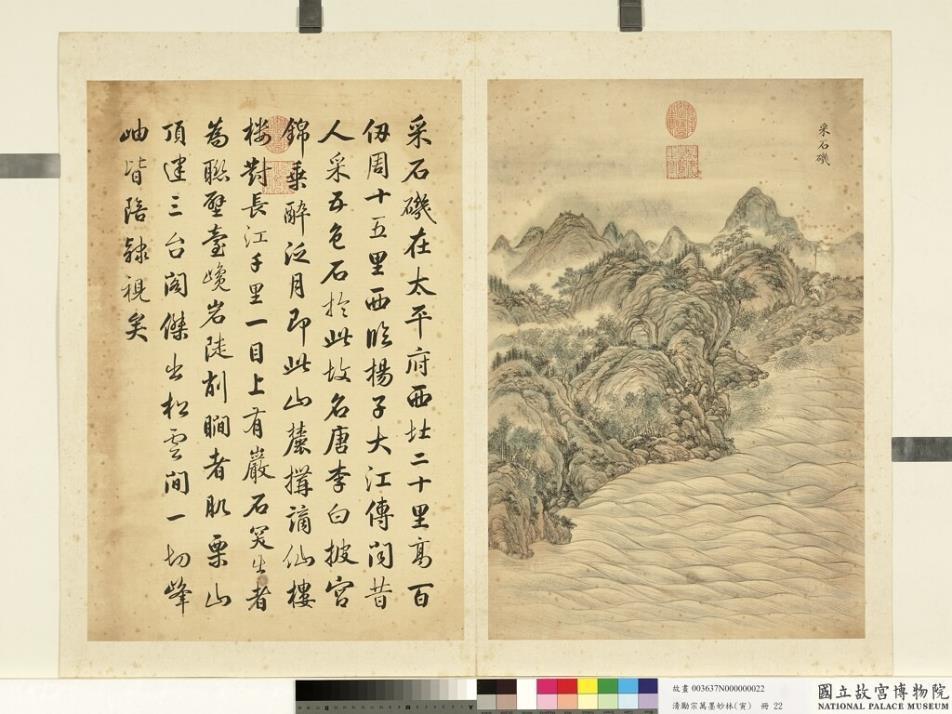 采石磯
采石磯在太平府西北二十里高百
仭周十五里西臨揚子大江傳聞昔
人采五色石於此故名唐李白披宮
錦乘醉泛月即此山麓搆謫仙樓
楼對長江千里一目上有巖石突出者
為聯壁臺巉岩陡削瞷者肌栗山
頂建三台閣傑出松雲間一切峰
岫皆陪隸視矣
故畫 003637N000000022
清勵宗萬墨妙林(寅) 冊 22
國立故宮博物院
NATIONAL PALACE MUSEUM